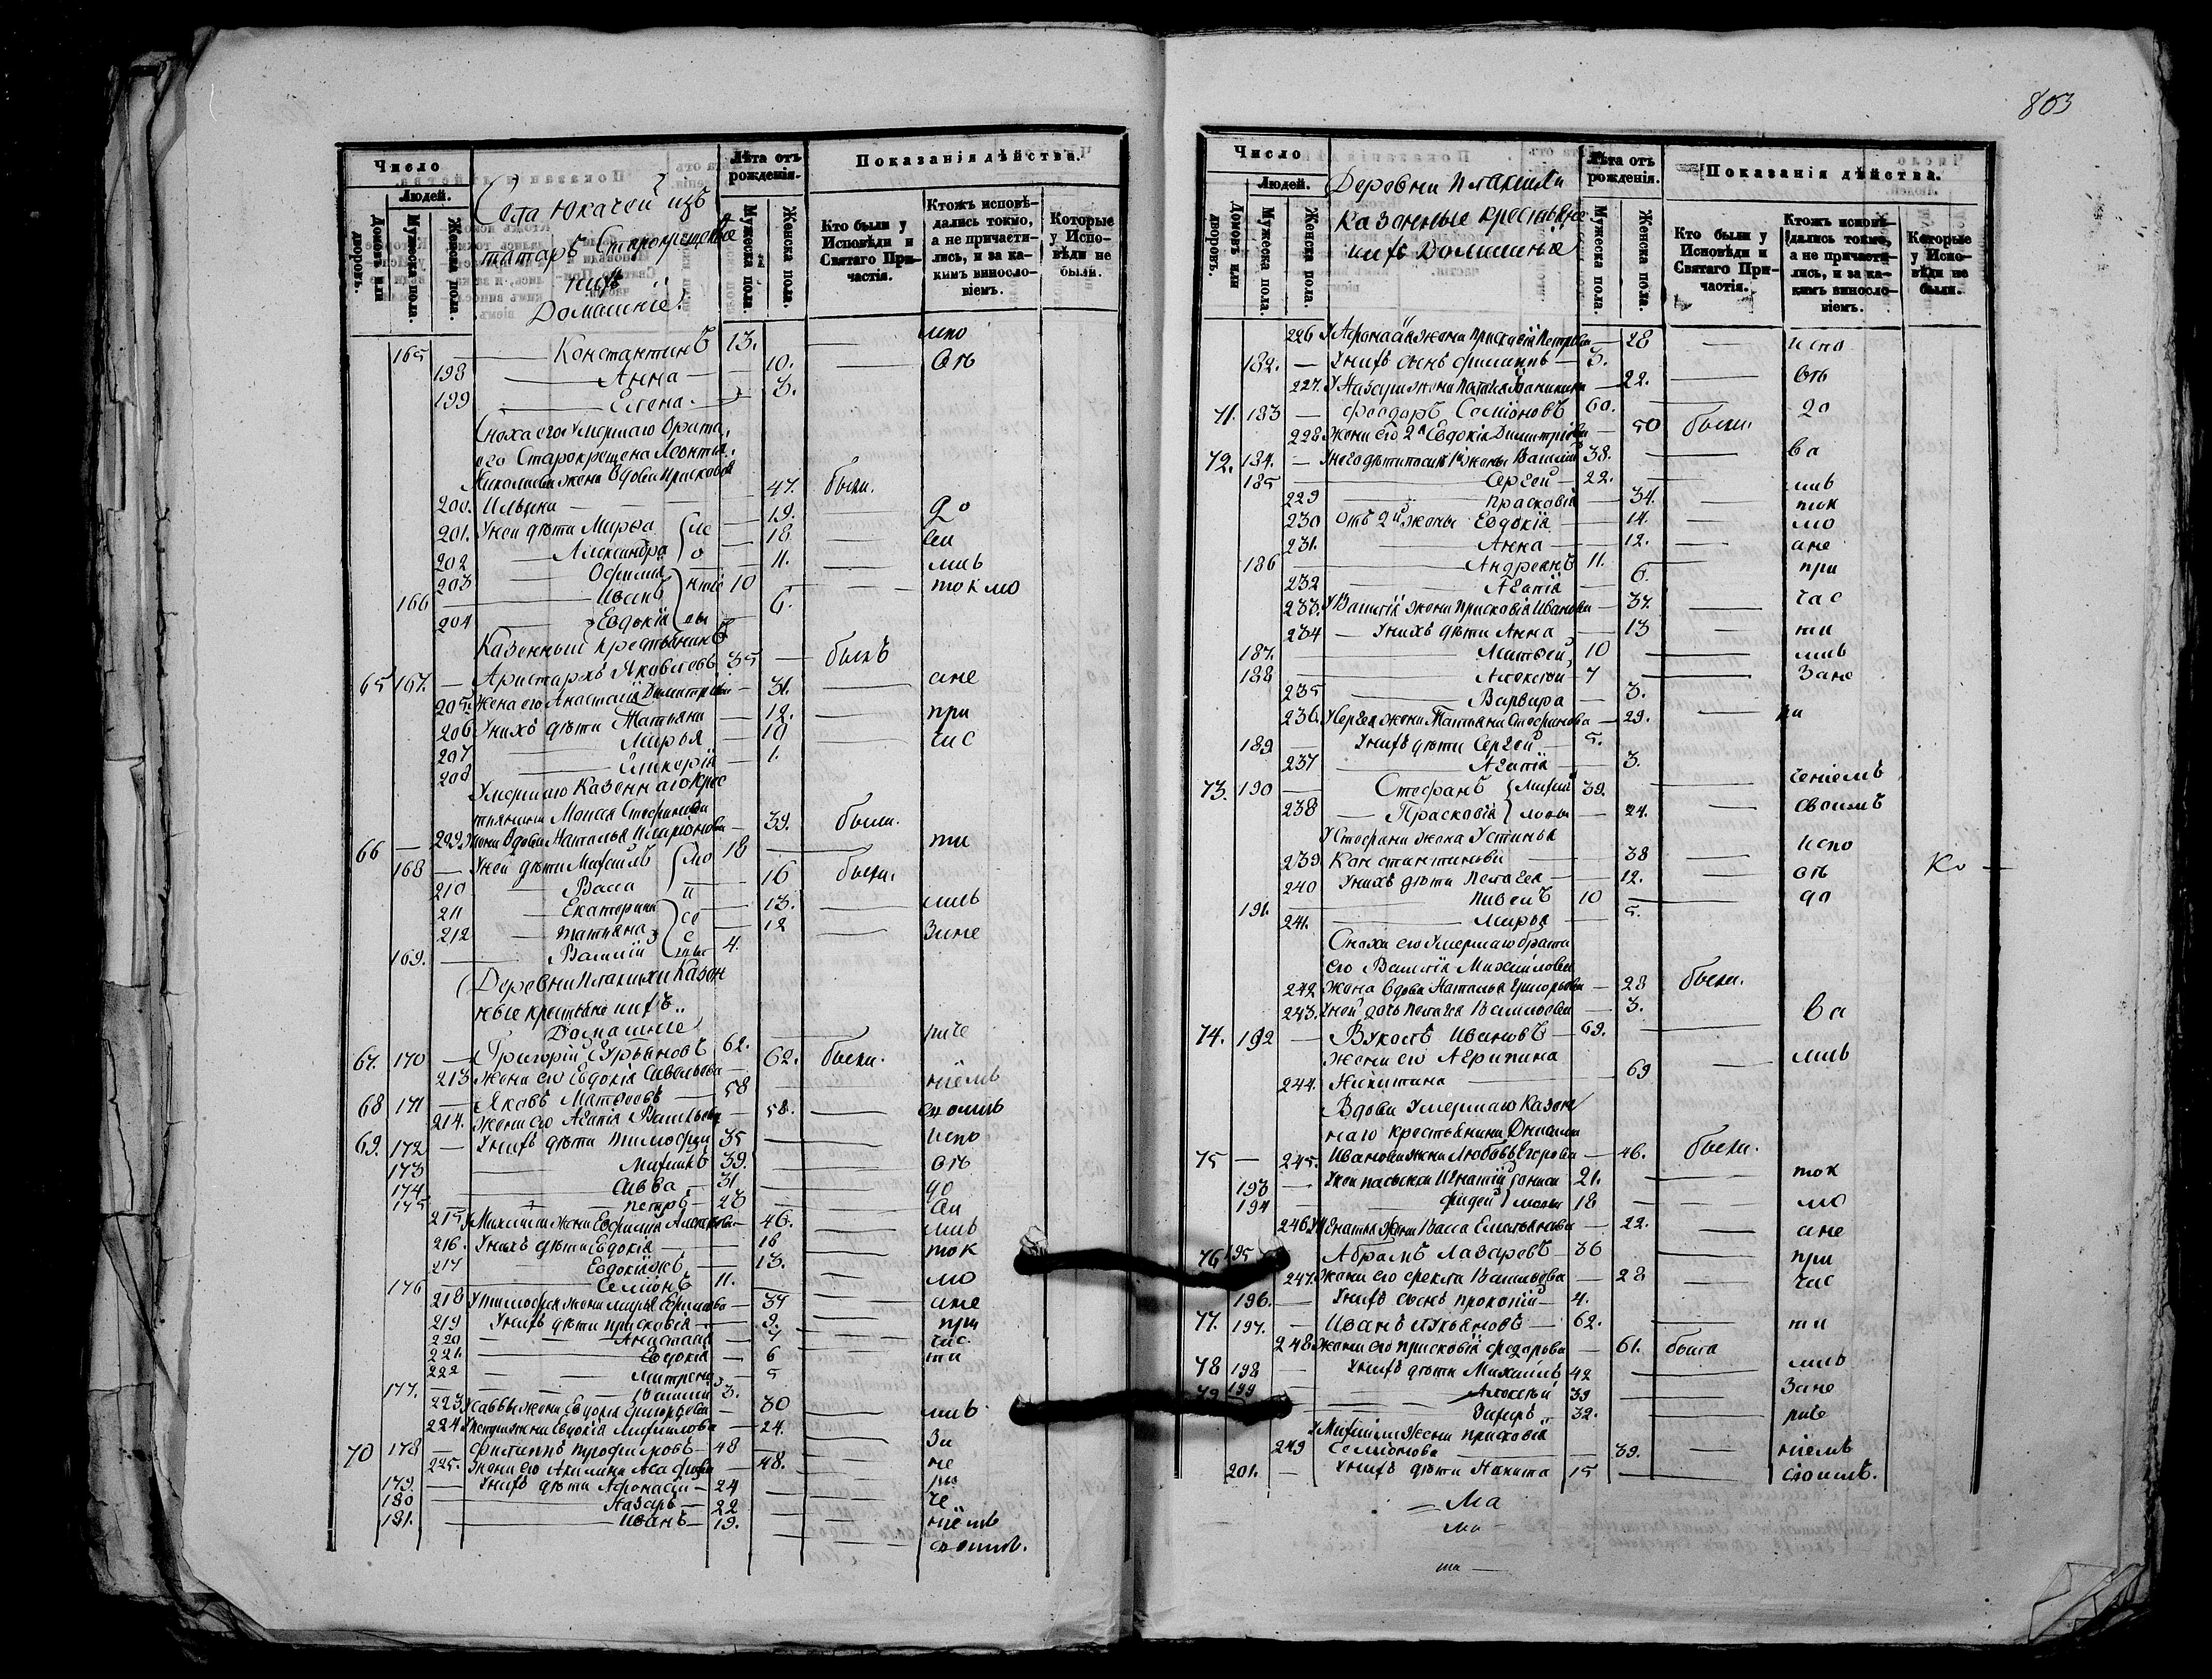 803
Число
Людей.
Домовъ или дворовъ.
Мужеска пола.
Женска пола.
Села Юкачей изъ
татаръ Старокрещеные
ихъ
Домашнiе
Лѣта отъ рожденiя.
Мужеска пола.
Женска пола.
Показанiя дѣйства.
Кто были у Исповѣди и Святаго Причастiя.
Ктожъ исповѣдались токмо, а не причастились, и за какимъ винословiемъ.
Которые у Исповѣди не были.
165 — Константинъ 13. — испо
198 — Анна — 10. — вѣ
199 — Елена — 3.
Сноха его Умершаго брата
его Старокрещена Леонтiя
Николаева жена Вдова Прасковья
200. Ильина — 47. были.
201. У ней дѣти Марѳа — 19. — до
202 — Александра — 18 — ва
203 — Офимiя — 11. — лись
166 — Иванъ 10 — токмо
204 — Евдокiя — 6.
Казенный крестьянинъ
65 167. — Аристархъ Яковлевъ 35 — былъ
205. Жена его Анастасiя Димитрiева — 31. — а не
206 У нихъ дѣти Татьяна — 12. — при
207 — Марья — 10 — час
208 — Гликерiя — 1.
Умершаго Казеннаго крес
тьянина Моисея Стефанова
66 — 209 жена Вдова Наталья Иларiонова — 39. были.
168 — У ней дѣти Михаилъ 18 — ти
210 — Васса — 16 были.
211 — Екатерина — 13. — лись
212 — Татьяна — 12 — За не
169. — Василiй 4.
Деревни Плакихи Казен
ные крестьяне ихъ
Домашнiе
67. 170 — Григорiй Гурьяновъ 62. — рач
213 Жена его Евдокiя Савельева — 62. были.
68 171 — Яковъ Матвеевъ — 58 — нiемъ
214. Жена его Агапiя Васильева — 58. — своимъ
69. 172 — У нихъ дѣти Тимофей 35 — испо
173 — Михаилъ 39. — вѣ
174 — Савва — 31 — до
175 — Петръ — 23 — ва
215 У Михаила жена Евфимiя Алексеева — 46. — лись
216. У нихъ дѣти Евдокiя — 16 — ток
217 — Евдокiя жъ — 13.
176 — Семiонъ 11. — мо
218 У Тимофея жена Марья Ермилова — 34 — а не
219 У нихъ дѣти Прасковiя — 9. — при
220 — Анастасiя — 7 — час
221. — Евдокiя — 6 — ти
222 — Матрена — 5
177. — Василiй 3.
223 У Саввы жена Евдокiя Григорьева — 30 — лись
224 У Петра жена Евдокiя Михайлова — 24.
70 178 — Филиппъ Трофимовъ — 48 — За
225. Жена его Акилина — 48. — не
179. — У нихъ дѣти Афонасiй — 24 — ра
180 — Назаръ — 22 — че
181. — Иванъ — 19. — нiемъ
своимъ.
Число
Людей.
Домовъ или дворовъ.
Мужеска пола.
Женска пола.
Деревни Плакихи
казенные крестьяне
ихъ Домашнiе
Лѣта отъ рожденiя.
Мужеска пола.
Женска пола.
Показанiя дѣйства.
Кто были у Исповѣди и Святаго Причастiя.
Ктожъ исповѣдались токмо, а не причастились, и за какимъ винословiемъ.
Которые у Исповѣди не были.
226 У Афонасiя жена Прасковiя Петрова — 28 — испо
182. — У нихъ сынъ Филиппъ — 3.
227. У Назара жена Пелагея — 22. — вѣ
71. 183 — Феодоръ Семiоновъ 60. — до
228 Жена его 2я Евдокiя Димитрiева — 50 были.
72. 184. — У него дѣти Василiй 38. — ва
185 — Сергей — 22. — лись
229 — Прасковiя — 34. — ток
230 отъ 2й жены Евдокiя — 14. — мо
231. — Анна — 12. — а не
186 — Андреянъ 11. — при
232 — Агапiя — 6.
233. У Василiя жена Прасковiя Иванова — 37. — час
234 — У нихъ дѣти Анна — 13 — ти
187. — Матвей 10 — лись
188 — Алексей — 7 — За не
235 — Варвара — 3.
236 У Сергея жена Татьяна Стефанова — 29. — ра
189 — У нихъ дѣти Сергей — 5.
237 — Агапiя — 3.
73. 190 — Стефанъ 39. — ченiемъ
238 — Прасковiя — 24. — своимъ
У Стефана жена Устинья
239 Константинова — 38 — испо Ко —
240 У нихъ дѣти Пелагея — 12. — вѣ
191. — Павелъ 10 — до
241. — Марья — 5.
Сноха его Умершаго брата
его Василiя Михайлова
242 Жена вдова Наталья Григорьева — 28 были.
243. У ней дочь Пелагея Васильева — 3. — ва
74. 192 — Вуколъ Ивановъ — 69.
Жена его Агрипина — лись
244. Никитина — 69
Вдова Умершаго Казен
наго крестьянина
75 — 245. Иванова жена Любовь Егорова — 46. были.
193 — У ней пасынки Игнатiй 21. — ток
194 — Фадей 18 — мо
246 У Игнатья Жена Васса Емельянова — 22. — а не
76 195 Абрамъ Лазаревъ — 36 — при
247. Жена его Фекла Васильева — 28 — час
196. — У нихъ сынъ Прокопiй — 4.
77. 197. — Иванъ Лукьяновъ — 62. — ти
248 Жена его Прасковiя Федорова — 61. была
78 198 — У нихъ дѣти Михаилъ 42 — лись
79 199 — Алексѣй 39 — За не
— Захаръ 32. — раче
У Михаила Жена Прасковiя
249 Семiонова — 39. — нiемъ
201. — У нихъ дѣти Никита 15 — своимъ.
— Ма
ма —
ма —